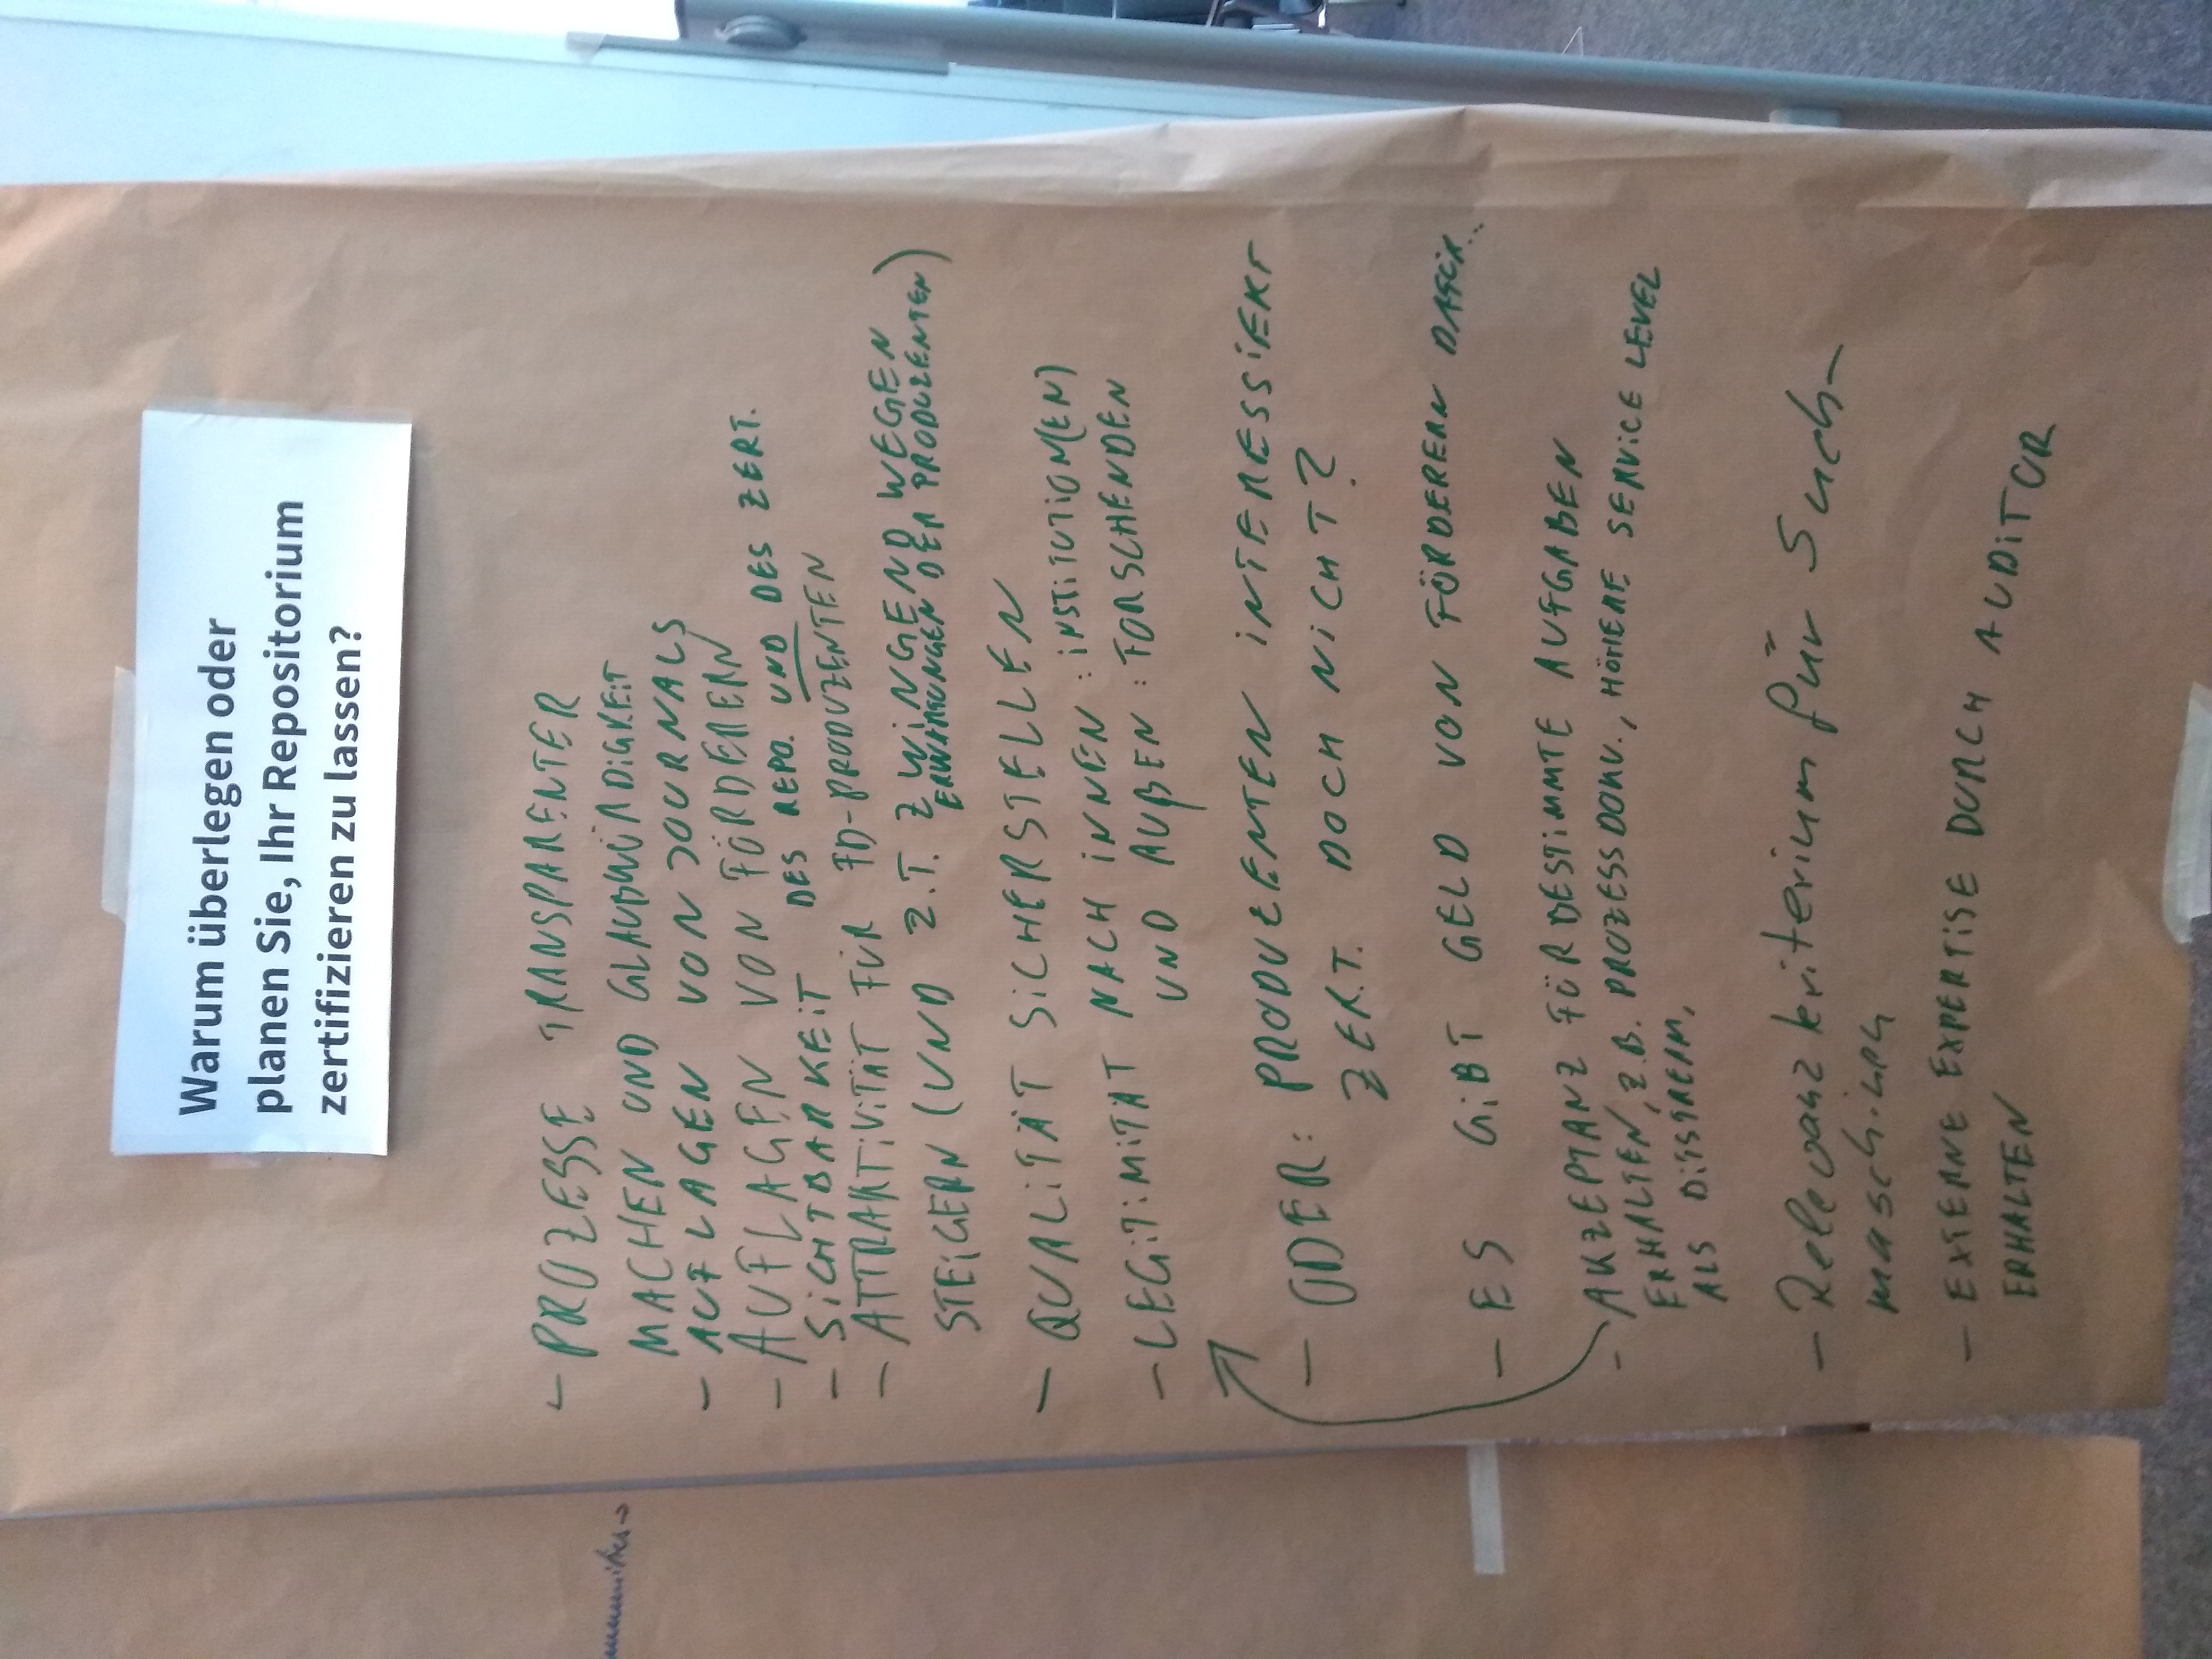 Warum überlegen oder
planen Sie, Ihr Repositorium
zertifizieren zu lassen?
- PROZESSE TRANSPARENTER
MACHEN UND GLAUBWÜRDIGKEIT
- AUFLAGEN VON JOURNALS
- AUFLAGEN VON FÖRDERERN
- SICHTBARKEIT DES REPO. UND DES ZERT.
- ATTRAKTIVITÄT FÜR FD-PRODUZENTEN
STEIGERN (UND Z.T. ZWINGEND WEGEN
ERWARTUNGEN DER PRODUZENTEN)
- QUALITÄT SICHERSTELLEN
- LEGITIMITÄT NACH INNEN : INSTITUTION(EN)
UND AUßEN : FORSCHENDEN
- ODER: PRODUZENTEN INTERESSIERT
ZERT. DOCH NICHT?
- ES GIBT GELD VON FÖRDERERN DAFÜR..
- AKZEPTANZ FÜR BESTIMMTE AUFGABEN
ERHALTEN, Z.B. PROZESSDOKU., HÖHERE SERVICE LEVEL
ALS DISSGREM.
- Relevanzkriterium für Such-
maschinen
- EXTERNE EXPERTISE DURCH AUDITOR
ERHALTEN